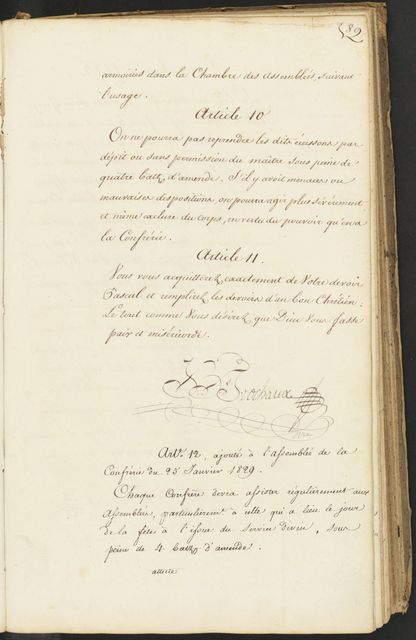 82
armoiries dans la Chambre des Assemblées, suivant
l'usage.
Article 10
On ne pourra pas reprendre les dits écussons par
dépit ou sans permission du maître sous peine de
quatre batz d'amende. S'il y avoit menaces ou
mauvaises dispositions, on pourra agir plus sévèrement
et même exclure du corps, en vertu du pouvoir qu'en a
la Confrérie.
Article 11.
Vous vous acquitterez exactement de Votre devoir
Pascal et remplirez les devoirs d'un bon Chrétien:
Le tout comme Vous désirez que Dieu Vous fasse
paix et miséricorde.
Brochaux
Art. 12, ajouté à l'Assemblée de la
Confrérie du 25 Janvier 1829.
Chaque Confrère devra assister régulièrement aux
Assemblées, particulièrement à celle qui a lieu le jour
de la fête à l'issue du Service divin, sous
peine de 4 batz d'amende.
article